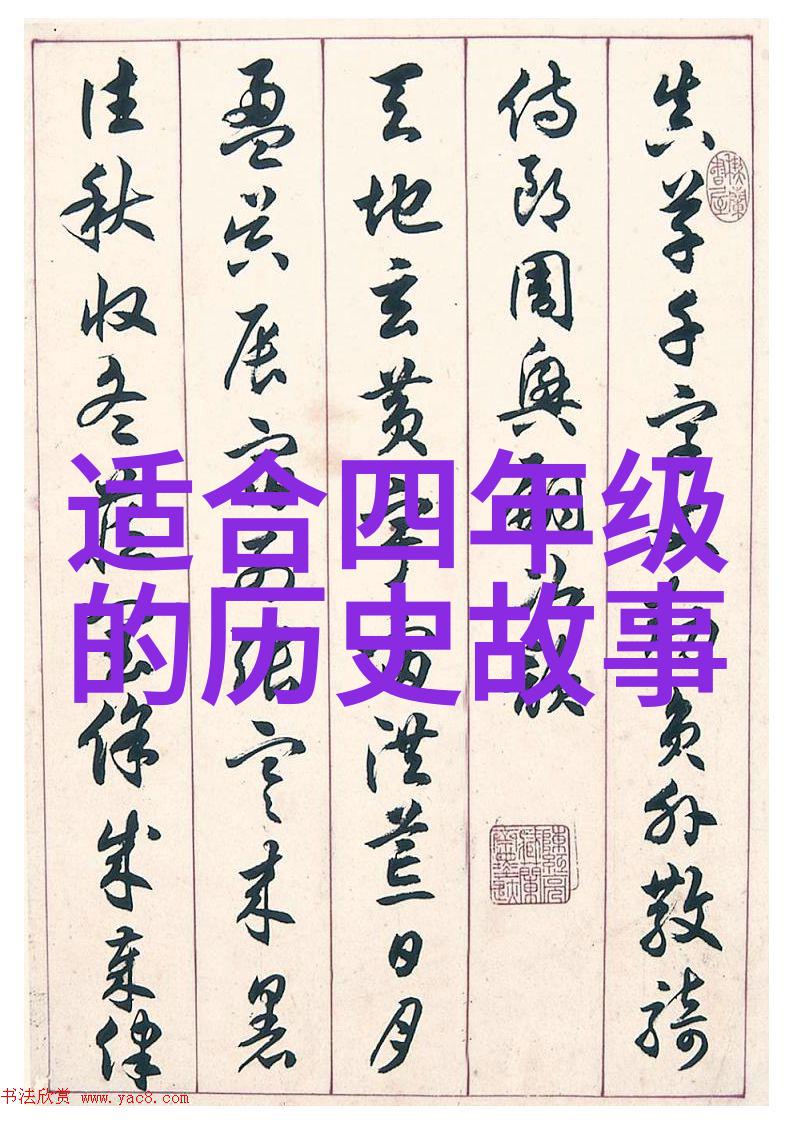 真草千字文勅員外散騎
侍郎周興嗣次韻
天地玄黄宇宙洪荒日月
盈昃辰宿列張寒来暑
往秋收冬藏閏餘成歲律
适合四年级
的历史故事
书法欣赏 www.yac8.com